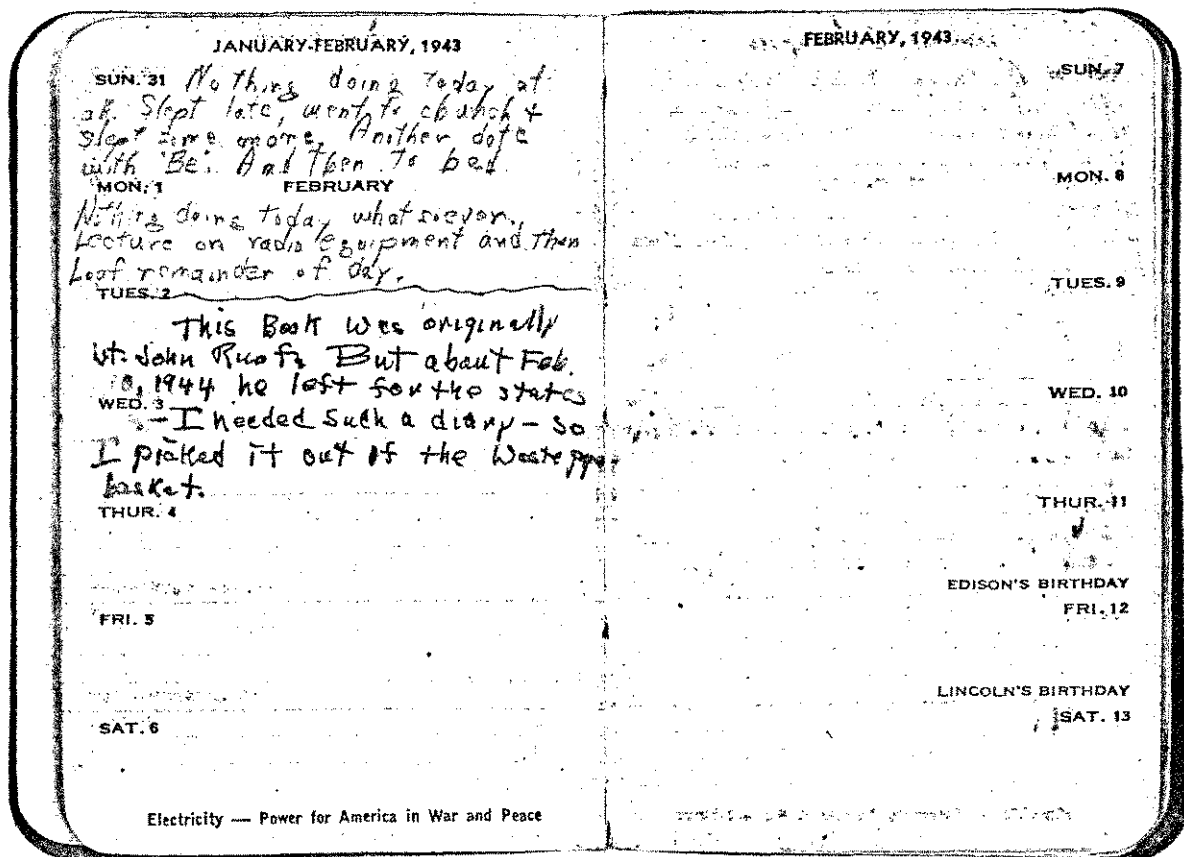 JANUARY-FEBRUARY, 1943
SUN. 31 Nothing doing today at
all. Slept late, went to church &
slept some more. Another date
with Be. And then to bed
MON. 1 FEBRUARY
Nothing doing today whatsoever.
Lecture on radio equipment and then
Loaf remainder of day.
TUES. 2
This Book was originally
Lt. John But about Feb.
10, 1944 he left for the states
WED. 3
- I needed such a diary - so
I picked it out of the waste paper
basket.
THUR. 4
FRI. 5
SAT. 6
Electricity — Power for America in War and Peace
FEBRUARY, 1943
SUN. 7
MON. 8
TUES. 9
WED. 10
THUR. 11
EDISON'S BIRTHDAY
FRI. 12
LINCOLN'S BIRTHDAY
SAT. 13